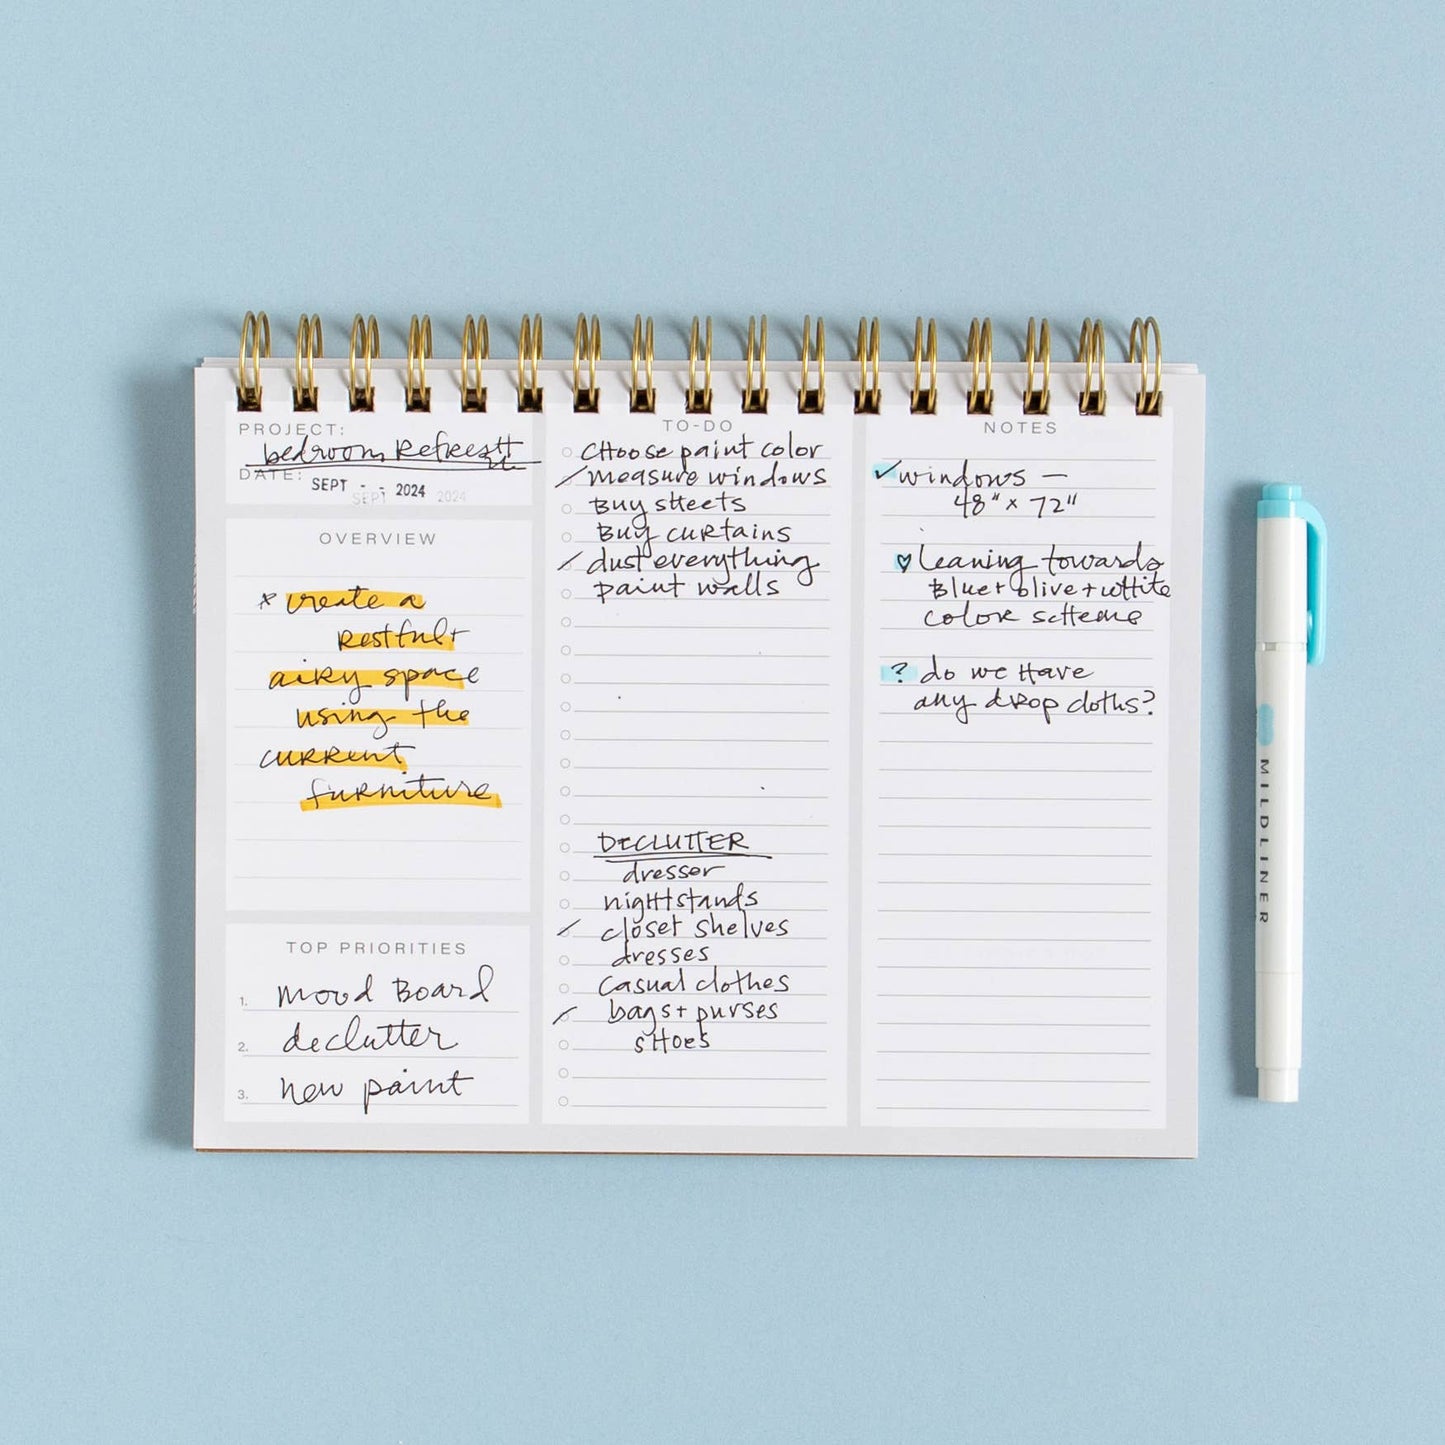 PROJECT:
bedroom Refresh
DATE:
SEPT - - 2024
SEPT 2024
OVERVIEW
* create a
restful +
airy space
using the
current
furniture
TOP PRIORITIES
1. mood board
2. declutter
3. new paint
TO-DO
choose paint color
measure windows
Buy sheets
Buy curtains
dust everything
paint walls
DECLUTTER
dresser
nightstands
closet shelves
dresses
casual clothes
bags + purses
shoes
NOTES
✓ windows —
48" x 72"
♡ leaning towards
Blue + olive + white
color scheme
? do we have
any drop cloths?
MILDLINER